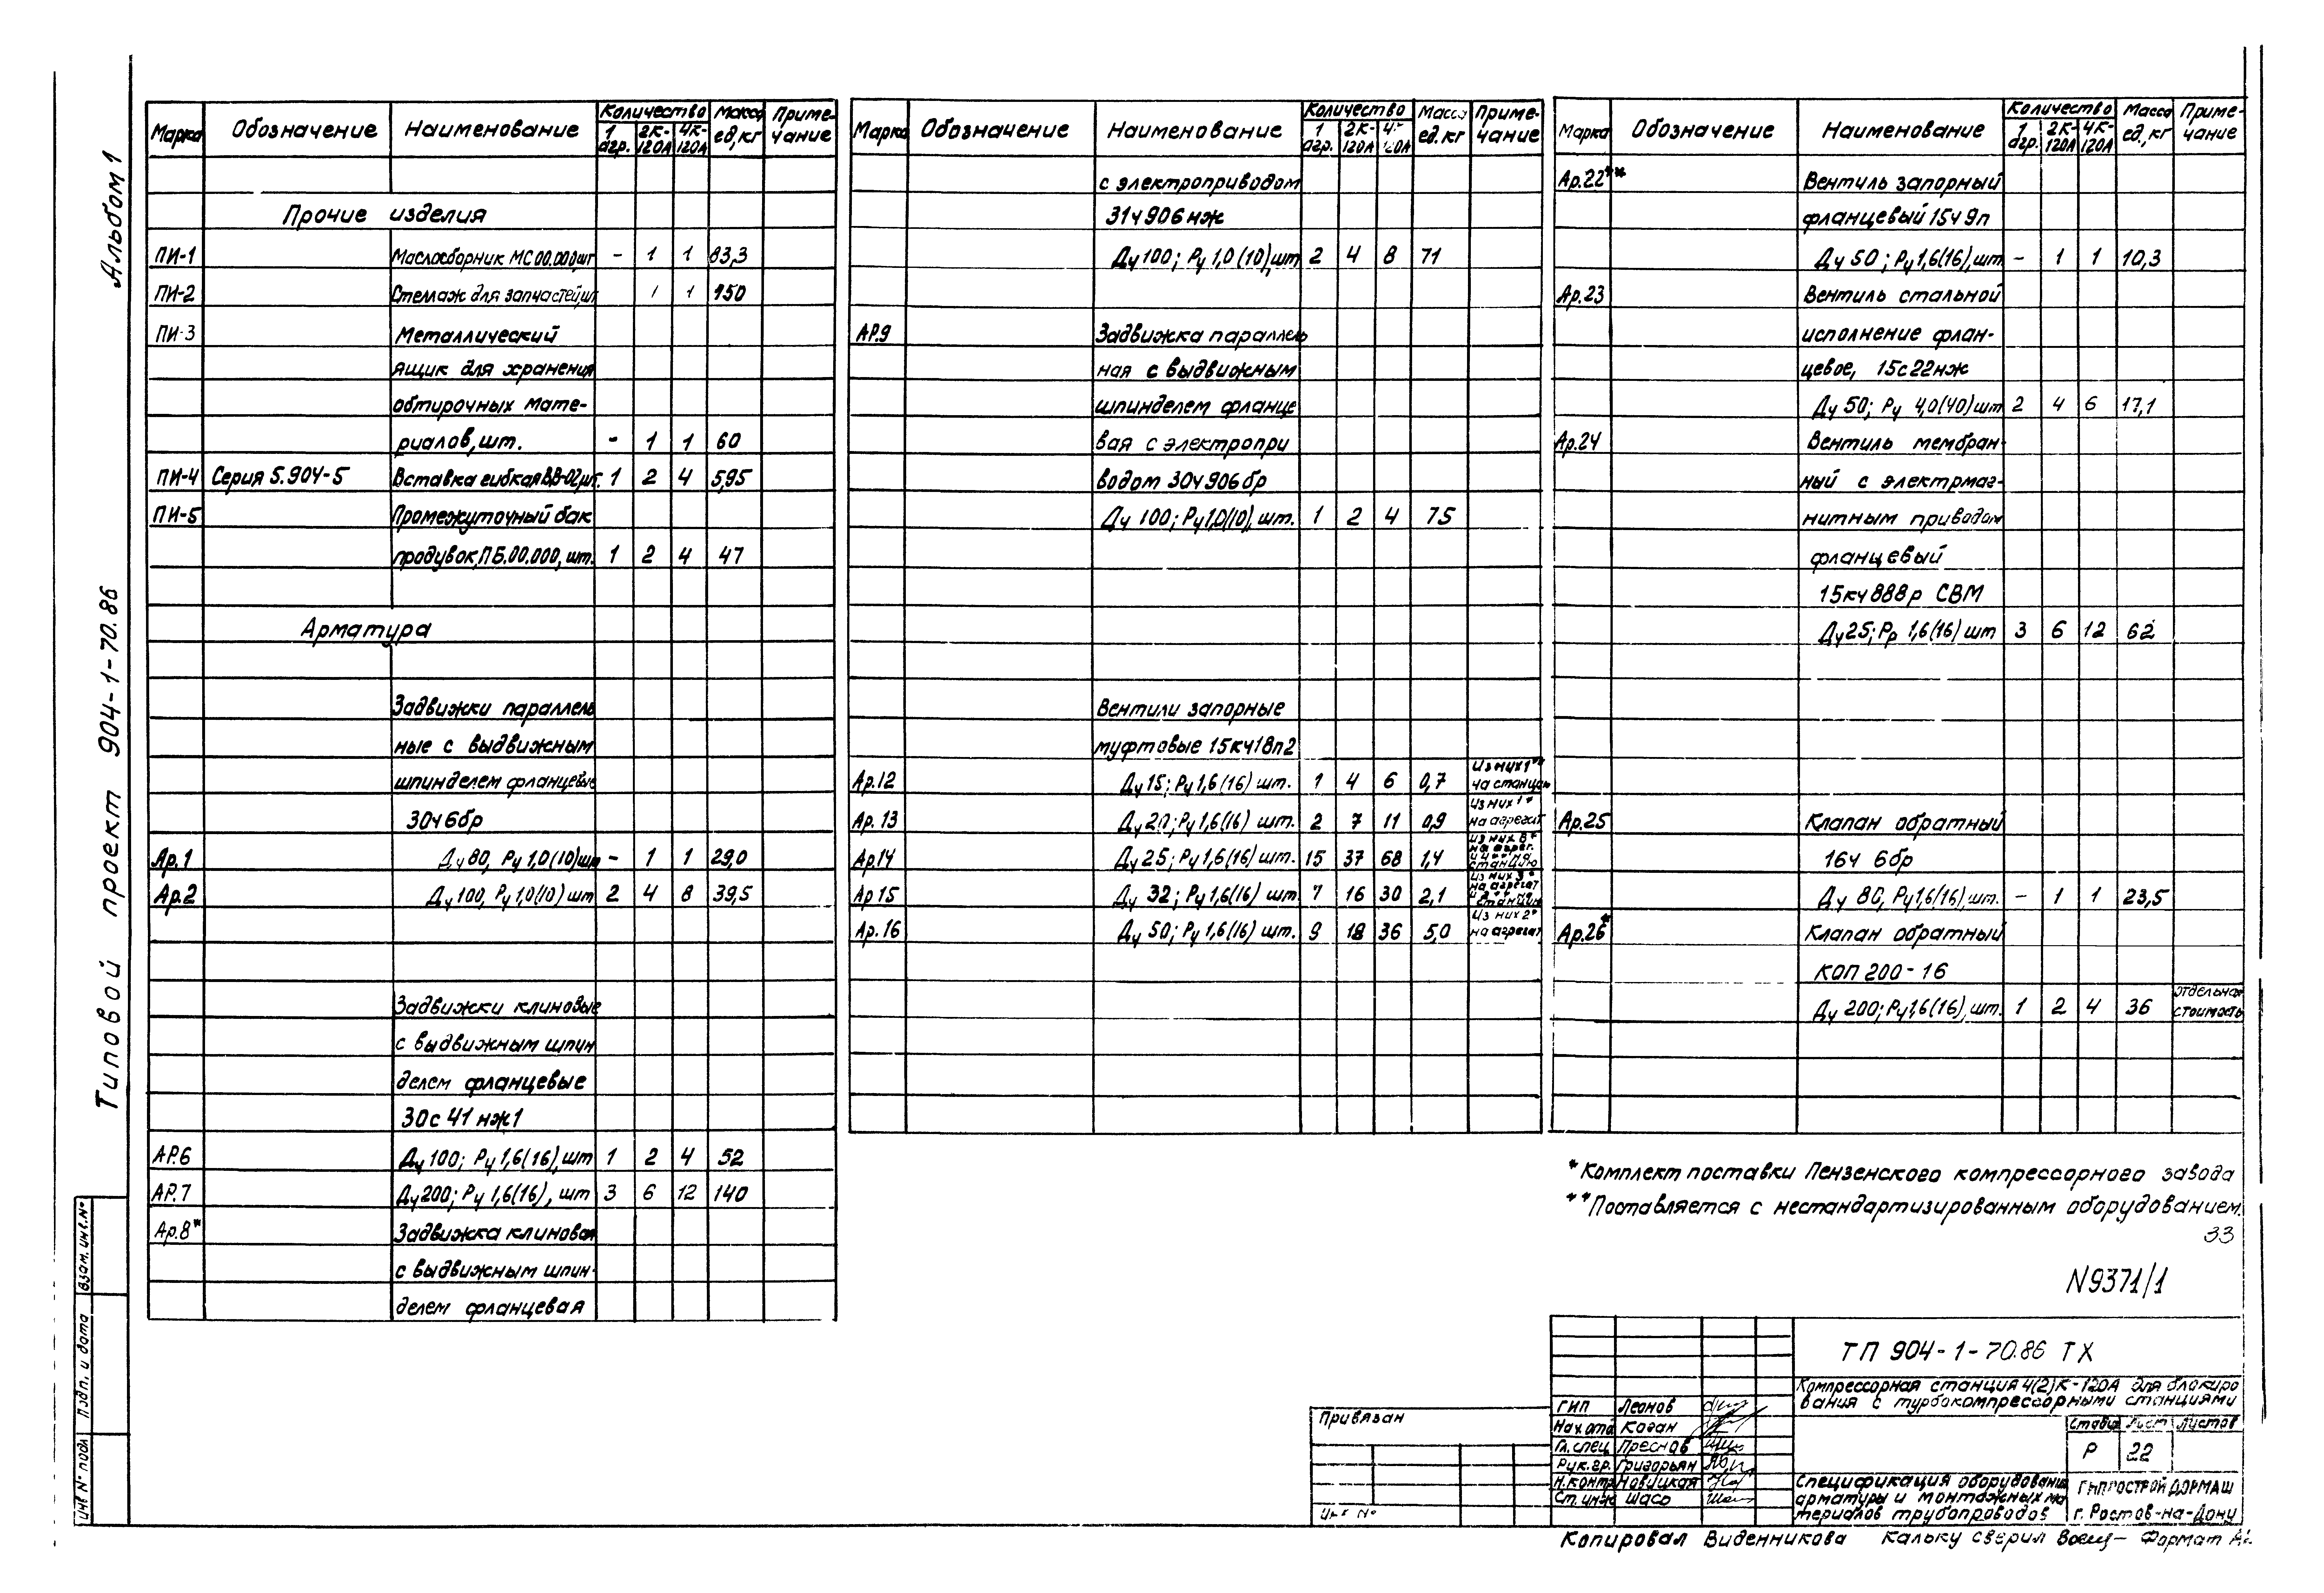 Альбом 1
Типовой проект 904-1-70.86
Марка Обозначение Наименование Количество 1 агр. 2К-120А 4К-120А Масса ед,кг Примечание
Прочие изделия
ПИ-1 Маслосборник МС00.000,шт - 1 1 83,3
ПИ-2 Стеллаж для запчастей,шт 1 1 150
ПИ-3 Металлический
ящик для хранения
обтирочных мате-
риалов,шт. - 1 1 60
ПИ-4 Серия 5.904-5 Вставка гибкая ВВ-02,шт. 1 2 4 5,95
ПИ-5 Промежуточный бак
продувок,ПБ.00.000, шт. 1 2 4 47
Арматура
Задвижки параллель
ные с выдвижным
шпинделем фланцевые
30ч6бр
Ар.1 Ду 80, Ру 1,0(10)шт - 1 1 29,0
Ар.2 Ду 100, Ру 1,0(10) шт 2 4 8 39,5
Задвижки клиновые
с выдвижным шпин
делем фланцевые
30с 41 нж1
АР.6 Ду 100; Ру 1,6(16),шт 1 2 4 52
АР.7 Ду 200; Ру 1,6(16), шт 3 6 12 140
Ар.8* Задвижка клиновая
с выдвижным шпин-
делем фланцевая
Марка Обозначение Наименование Количество 1 агр. 2К-120А 120А Масса ед.кг Примечание
с электроприводом
31ч906нж
Ду 100; Ру 1,0 (10),шт 2 4 8 71
АР.9 Задвижка параллель
ная с выдвижным
шпинделем фланце
вая с электропри
водом 30ч906бр
Ду 100; Ру 1,0(10), шт. 1 2 4 75
Вентили запорные
муфтовые 15кч18п2
Ар.12 Ду 15; Ру 1,6(16) шт. 1 4 6 0,7 Из них 1** на станцию
Ар.13 Ду 20; Ру 1,6(16) шт. 2 7 11 0,9 Из них 1* на агрегат
Ар.14 Ду 25; Ру 1,6(16) шт. 15 37 68 1,4 из них 8* на агрег. станцию
Ар.15 Ду 32; Ру 1,6(16) шт 7 16 30 2,1 из них 3* на агрегат
Ар.16 Ду 50; Ру 1,6(16) шт. 9 18 36 5,0 Из них 2* на агрегат
Марка Обозначение Наименование Количество 1 агр. 2К-120А 4К-120А Масса ед.,кг Примечание
Ар.22** Вентиль запорный
фланцевый 15ч 9п
Ду 50; Ру 1,6(16),шт - 1 1 10,3
Ар.23 Вентиль стальной
исполнение флан-
цевое, 15с22нж
Ду 50; Ру 4,0(40)шт 2 4 6 17,1
Ар.24 Вентиль мембран-
ный с электрмаг-
нитным приводом
фланцевый
15кч888р СВМ
Ду 25; Рр 1,6(16) шт 3 6 12 62
Ар.25 Клапан обратный
16ч 6бр
Ду 80, Ру 1,6(16), шт. - 1 1 23,5
Ар.26* Клапан обратный
КОП 200-16
Ду 200; Ру 1,6(16), шт. 1 2 4 36 отдельная стоимость
* Комплект поставки Пензенского компрессорного завода
** Поставляется с нестандартизированным оборудованием.
33
N9371/1
ТП 904-1-70.86 ТХ
Компрессорная станция 4(2)К-120А для блокиро
вания с турбокомпрессорными станциями
Стадия Лист Листов
Р 22
Спецификация оборудования
арматуры и монтажных ма
териалов трубопроводов
ГИПРОСТРОЙДОРМАШ
г. Ростов-на-Дону
ГИП Леонов
Нач.отд Коган
Гл.спец Преснов
Рук.гр. Григорьян
Н.контр Новицкая
Ст.инж Шасо
Привязан
Инв №
Взам.инв.№
Подп. и дата
Инв № подл
Копировал Виденникова Кальку сверил Формат А2